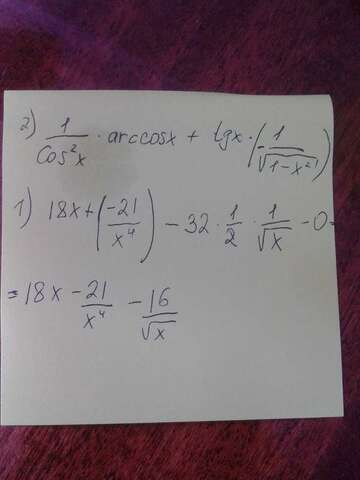 2) 1/cos²x · arccosx + tgx · (-1/√(1-x²))
1) 18x + (-21/x⁴) - 32 · 1/2 · 1/√x - 0 =
= 18x - 21/x⁴ - 16/√x